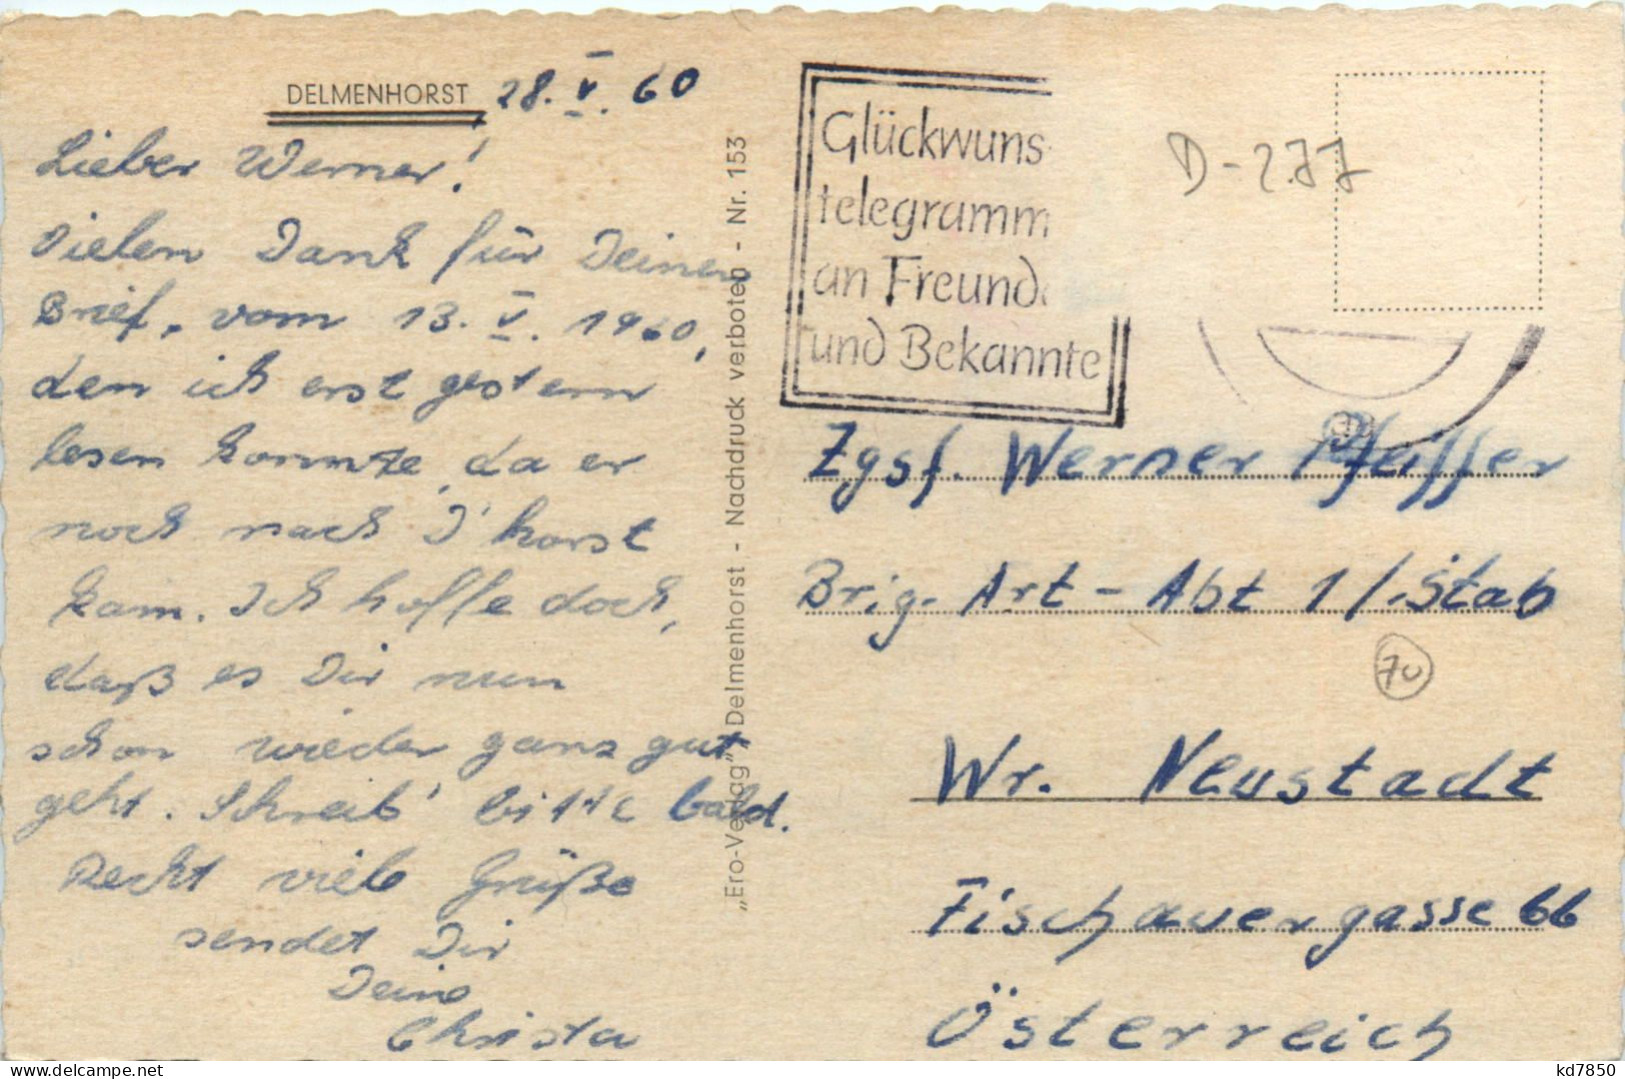 DELMENHORST, 28. V. 60
Lieber Werner!
Vielen Dank für Deinen
Brief, vom 13. V. 1960,
den ich erst gestern
lesen konnte, da er
noch nach D'horst
kam. Ich hoffe doch,
daß es Dir nun
schon wieder ganz gut
geht. Schreib' bitte bald.
Recht viele Grüße
sendet Dir
Deine
Christa
„Ero-Verlag" Delmenhorst - Nachdruck verboten - Nr. 153
Glückwuns
telegramm
an Freund
und Bekannte
D-2.77
Zgsf. Werner Pfeiffer
Brig. Art-Abt 1/.Stab
70
Wr. Neustadt
Fischauergasse 66
Österreich
kd7850